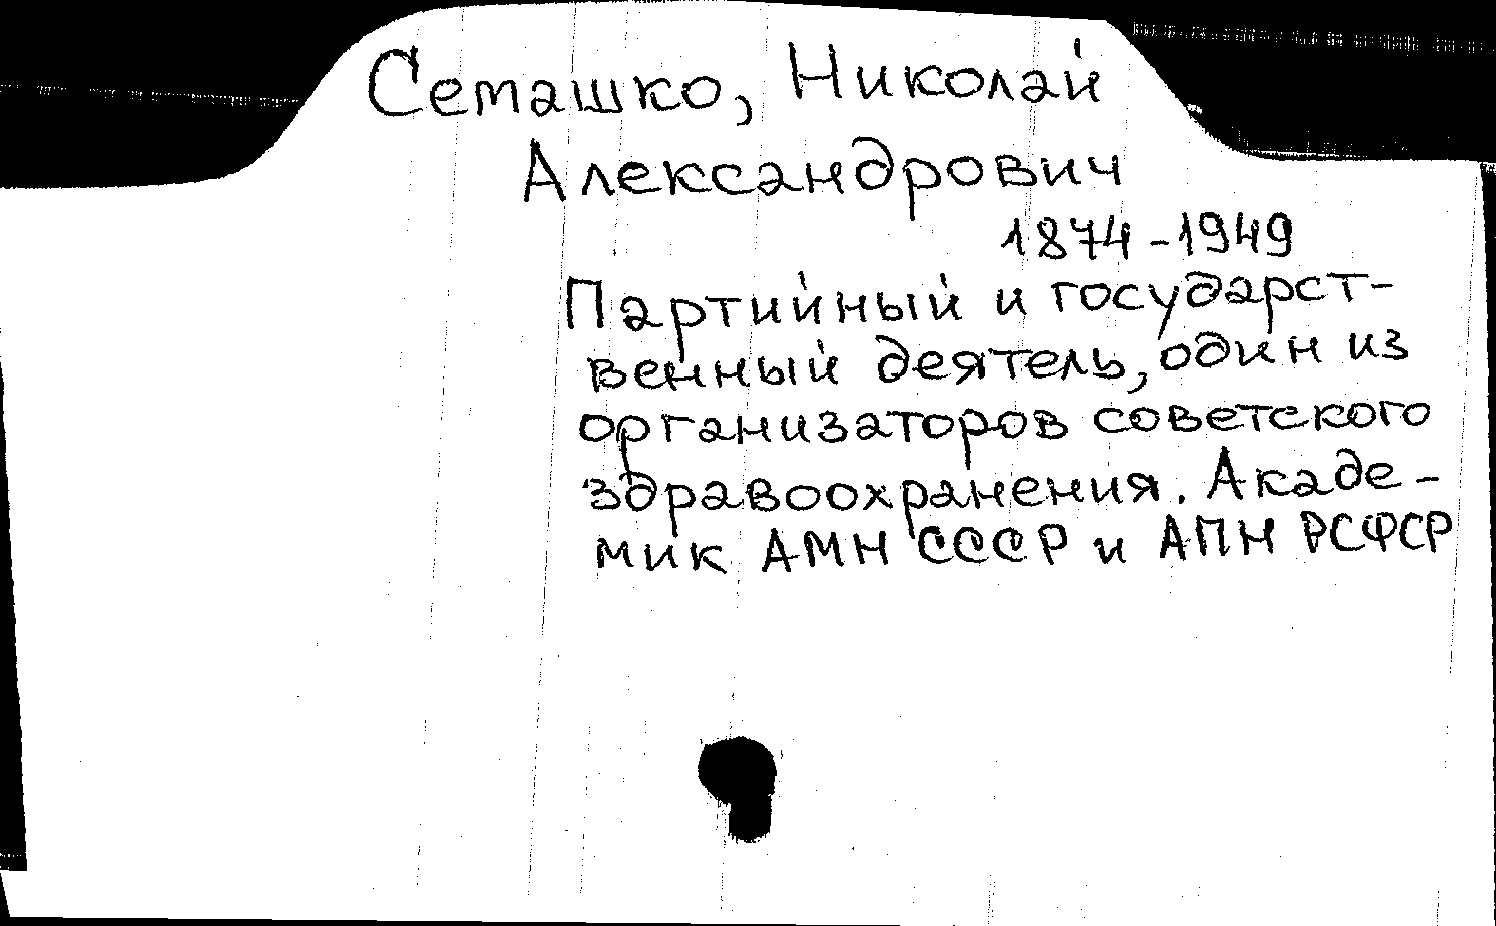 Семашко, Николай
Александрович
1874-1949
Партийный и государст-
венный деятель, один из
организаторов советского
здравоохранения. Акаде-
мик АМН СССР и АПН РСФСР